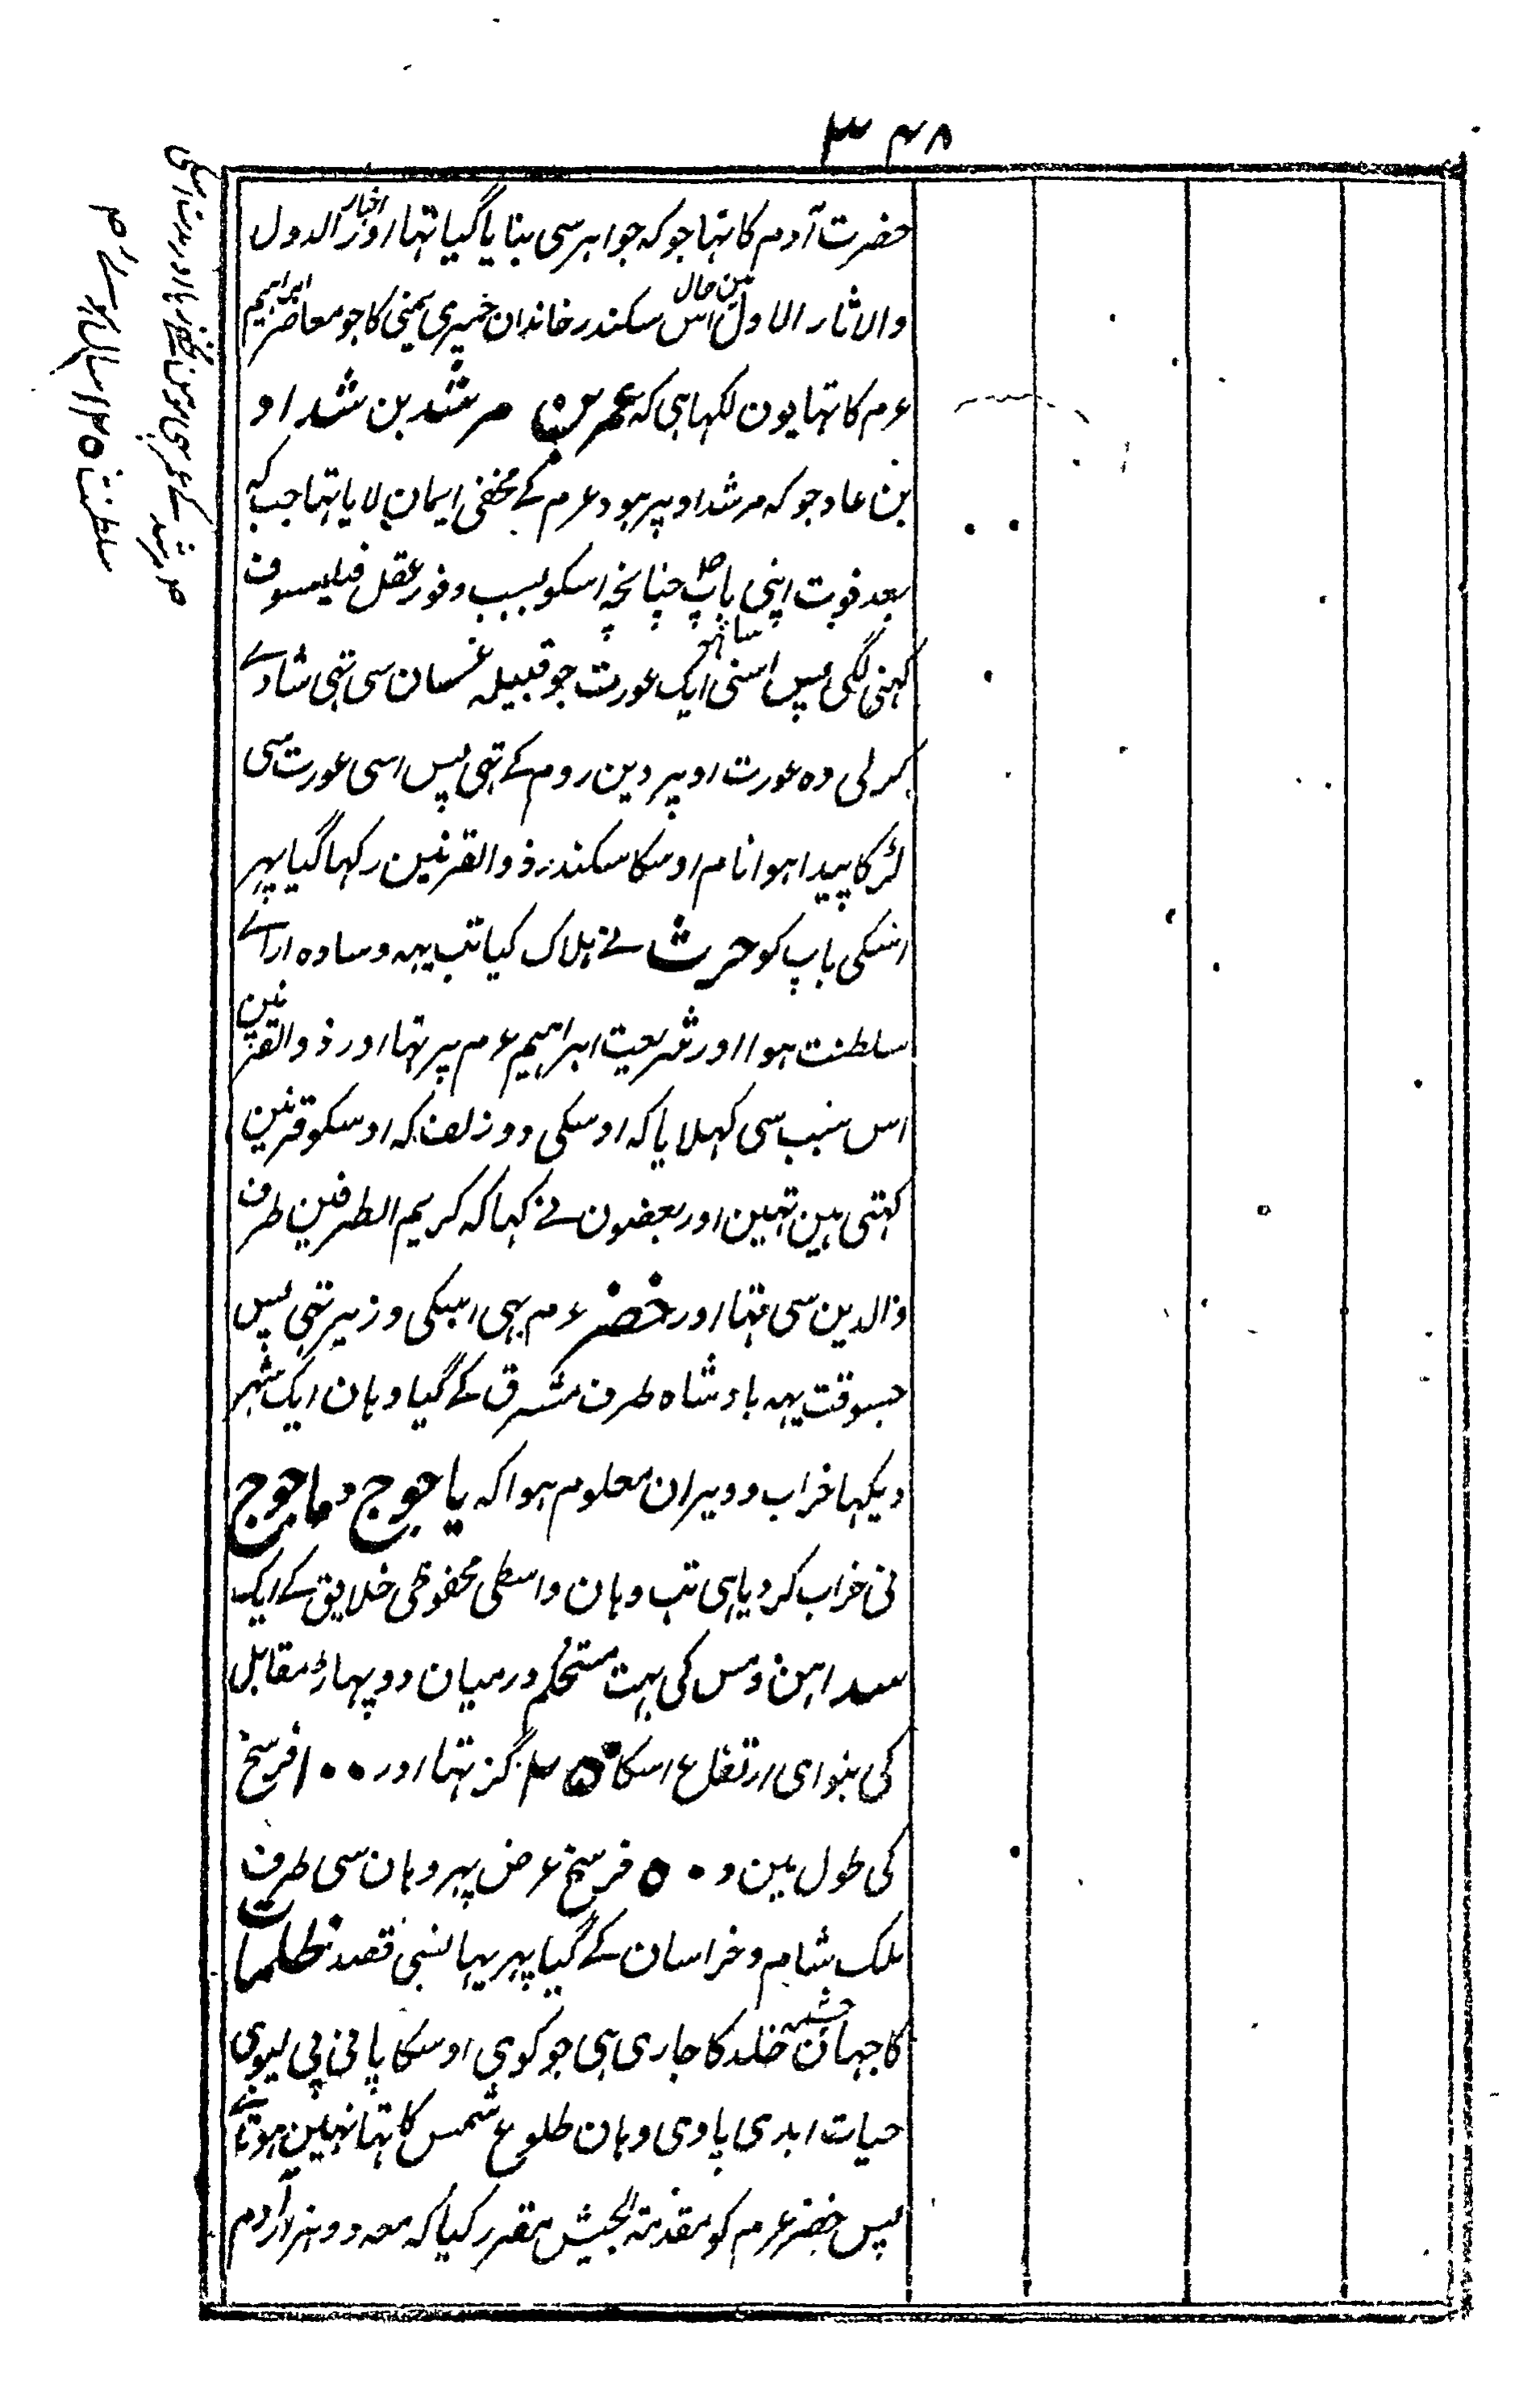 ۳۴۸
حضرت آدم کا تہا جو کہ جواہر سی بنایا گیا تہا اور اخبار الدول
والاثار الاول مین حال اس سکندر خاندان حمیری یمنی کا جو معاصر ابراہیم
عرم کا تہا یون لکہا ہی کہ عمر بن مرشد بن شداد
بن عاد جو کہ مرشد اوپر ہود عرم کے مخفی ایمان لایا تہا جب کہ
بعد فوت اپنی باپ چنانچہ اسکو بسبب وفور عقل فیلسوف
کہنی لگی پس اسنی ساتہہ ایک عورت جو قبیلہ غسان سی تہی شادے
کر لی وہ عورت اوپر دین روم کے تہی پس اسی عورت سی
لڑکا پیدا ہوا نام اوسکا سکندر ذوالقرنین رکہا گیا پہر
اسکی باپ کو حرث نے ہلاک کیا تب یہہ وسادہ اراے
سلطنت ہوا اور شریعت ابراہیم عرم پر تہا اور ذوالقرنین
اس سبب سی کہلایا کہ اوسکی دو زلف کہ اوسکو قرنین
کہتی ہین تہین اور بعضون نے کہا کہ کریم الطرفین طرف
والدین سی تہا اور خضر عرم بہی اسکی وزیر تہی پس
جسوقت یہہ بادشاہ طرف مشرق کے گیا وہان ایک شہر
دیکہا خراب و ویران معلوم ہوا کہ یاجوج و ماجوج
نی خراب کر دیا ہی تب وہان واسطی محفوظی خلایق کے ایک
سد اہن و مس کی بہت مستحکم درمیان دو پہاڑ مقابل
کی بنوای ارتفاع اسکا گز تہا اور ۱۰۰ فرسخ
کی طول مین و ۵۰ فرسخ عرض پہر وہان سی طرف
ملک شام و خراسان کے گیا پہر یہانسی قصد ظلمات
کا جہان چشمہ خلد کا جاری ہی جو کوی اوسکا پانی پی لیوی
حیات ابدی پاوی وہان طلوع شمس کا تہا نہین ہوتا
پس خضر عرم کو مقدمۃ الجیش مقرر کیا کہ معہ دو ہزار آدم